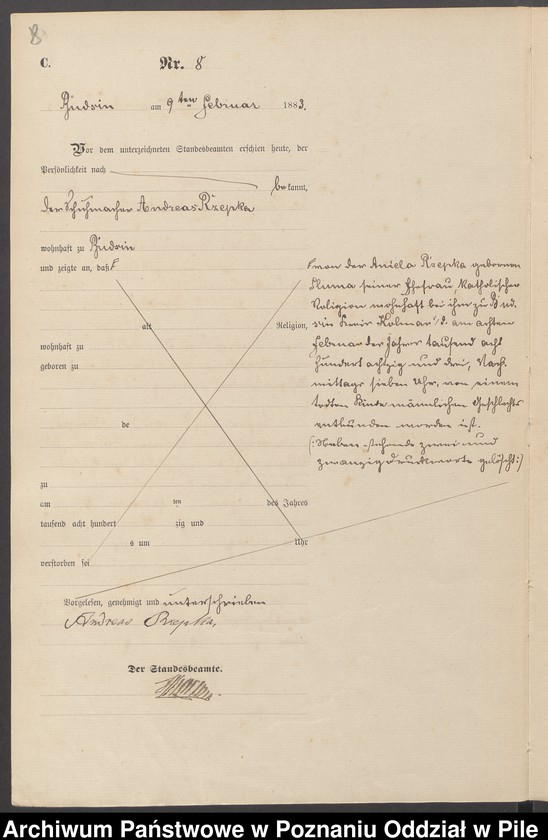 8
C.
Nr. 8
Budsin am 9 ten Februar 1883.
Vor dem unterzeichneten Standesbeamten erschien heute, der
Persönlichkeit nach
bekannt,
der Schuhmacher Andreas Rzepka
wohnhaft zu Budsin
und zeigte an, daß
von der Aniela Rzepka gebornen
seiner Ehefrau, katholischer
Religion wohnhaft bei ihm zu Bud-
sin Kreis Kolmar i/P. am achten
Februar des Jahres tausend acht
hundert achtzig und drei, Nach-
mittags sieben Uhr, von einem
todten Kinde männlichen Geschlechts
entbunden worden ist.
(: Nebenstehende zwei und
zwanzig Druckworte gelöscht :)
alt Religion,
wohnhaft zu
geboren zu
de
zu
am ten des Jahres
tausend acht hundert zig und
s um Uhr
verstorben sei
Vorgelesen, genehmigt und unterschrieben
Andreas Rzepka,
Der Standesbeamte.
Archiwum Państwowe w Poznaniu Oddział w Pile